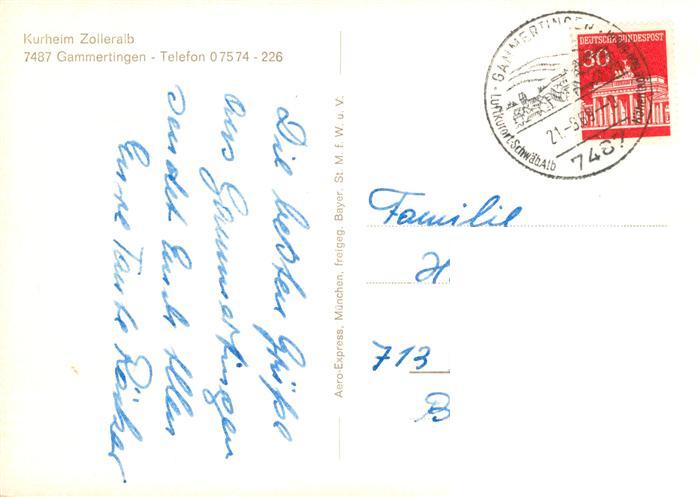 Kurheim Zolleralb
7487 Gammertingen - Telefon 0 75 74 - 226
Die besten Grüße
aus Gammertingen
sendet Euch allen
Eure Tante
Aero-Express, München, freigeg. Bayer. St. M. f. W. u. V.
GAMMERTINGEN
Luftkurort Schwäb.Alb
21.-8.69
7487
DEUTSCHE BUNDESPOST
30
Familie
H
713
B